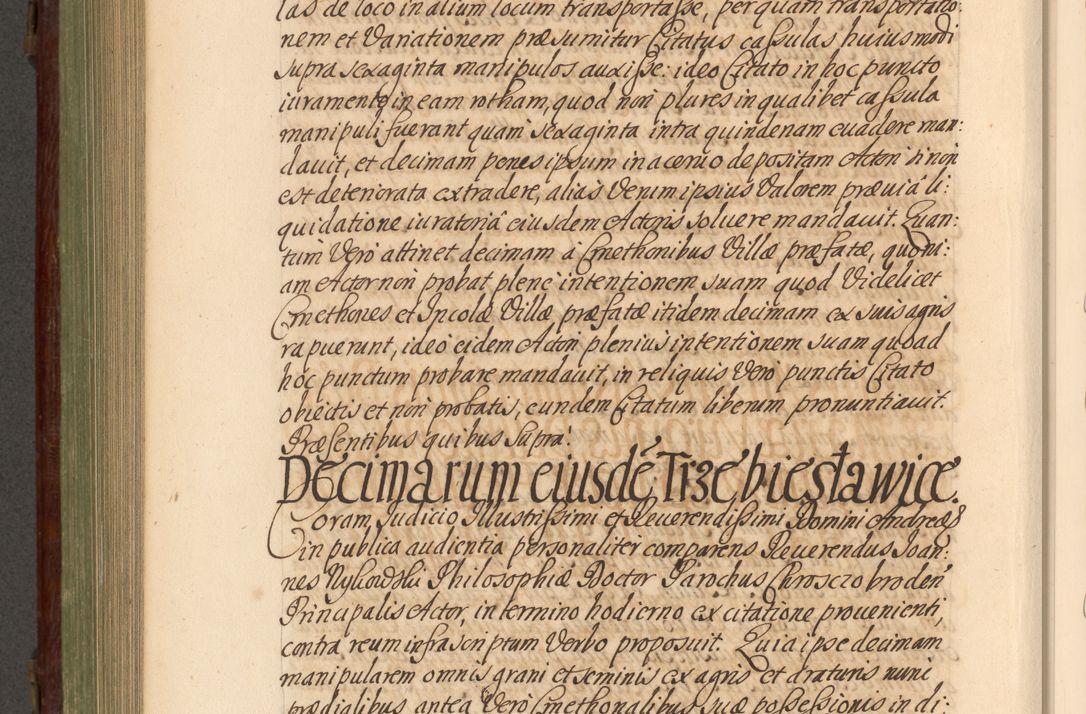 las de loco in alium locum transportasse, per quam transportatio:
nem et Variationem præsumitur Citatus cassulas huiusmodi
supra sexaginta manipulos auxisse: ideo Citato in hoc puncto
iuramento in eam rotham, quod non plures in qualibet cassula
manipuli fuerant quam sexaginta intra quindenam euadere man:
dauit, et decimam penes ipsum in aceruo depositam Actori si non
est deteriorata extradere, alias Verum ipsius Valorem præuia li:
quidatione iuratoria eiusdem Actoris soluere mandauit. Quan:
tum Vero attinet decimam a Cmethonibus Villæ præfatæ, quoni:
am Actor non probat plene intentionem suam quod Videlicet
Cmethones et Incolæ Villæ præfatæ itidem decimam ex suis agris
rapuerunt, ideo eidem Actori plenius intentionem suam quoad
hoc punctum probare mandauit, in reliquis Vero punctis Citato
obiectis et non probatis, eundem Citatum liberum pronuntiauit.
Præsentibus quibus supra.
Decimarum eiusdē Trzebiesławice.
Coram Iudicio Illustrissimi et Reuerendissimi Domini Andreæ &
in publica audientia personaliter comparens Reuerendus Ioan:
nes Rykowski Philosophiæ Doctor Parochus Chroszczobroden
Principalis Actor, in termino hodierno ex citatione prouenienti,
contra reum infrascriptum Verbo proposuit. Quia ipse decimam
manipularem omnis grani et seminis ex agris et araturis nunc
prædialibus antea Vero Cmethonalibus suæ possessionis in di: